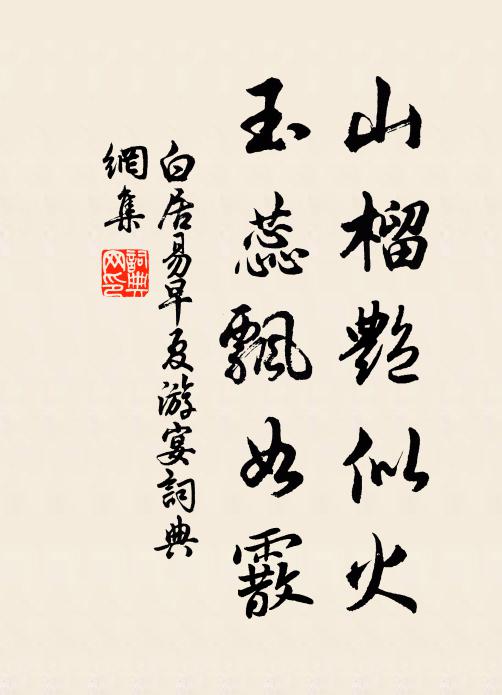 山榴艷似火
玉蕊飄如霰
白居易早夏游宴詞典
網集
詞典网印